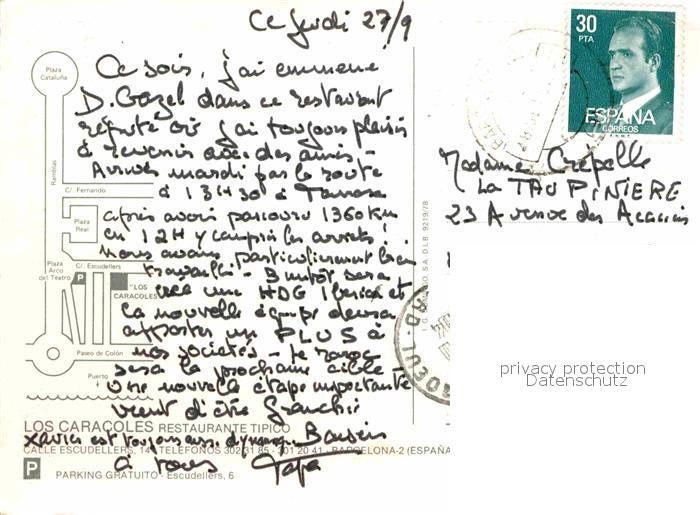 Ce Jeudi 27/9
Ce soir, j'ai emmené
D. Gozel dans ce restaurant
réputé où j'ai toujours plaisir
à revenir avec des amis -
Arrivés mardi par la route
à 13H30 à Tarrasa
après avoir parcouru 1360 km
en 12H y compris les arrêts!
Nous avons particulièrement bien
travaillé - Bientôt sera
créé une HDG Iberica et
la nouvelle équipe devra
apporter un PLUS à
nos sociétés - Le Maroc
sera la prochaine cible -
Une nouvelle étape importante
vient d'être franchie
Xavier est toujours aussi dynamique Baisers
à tous Papa
Madame Crépelle
La TAUPINIERE
23 Avenue des Acacias
30
PTA
ESPAÑA
CORREOS
F.N.M.T.
Plaza
Cataluña
Ramblas
C/. Fernando
Plaza
Real
C/. Escudellers
Plaza
Arco
del Teatro
P
"LOS
CARACOLES
Paseo de Colón
Puerto
LOS CARACOLES RESTAURANTE TIPICO
CALLE ESCUDELLERS, 14 - TELEFONOS 302 31 85 - 301 20 41 - BARCELONA-2 (ESPAÑA
P PARKING GRATUITO - Escudellers, 6
S.A. D.L.B. 9219/78
privacy protection
Datenschutz